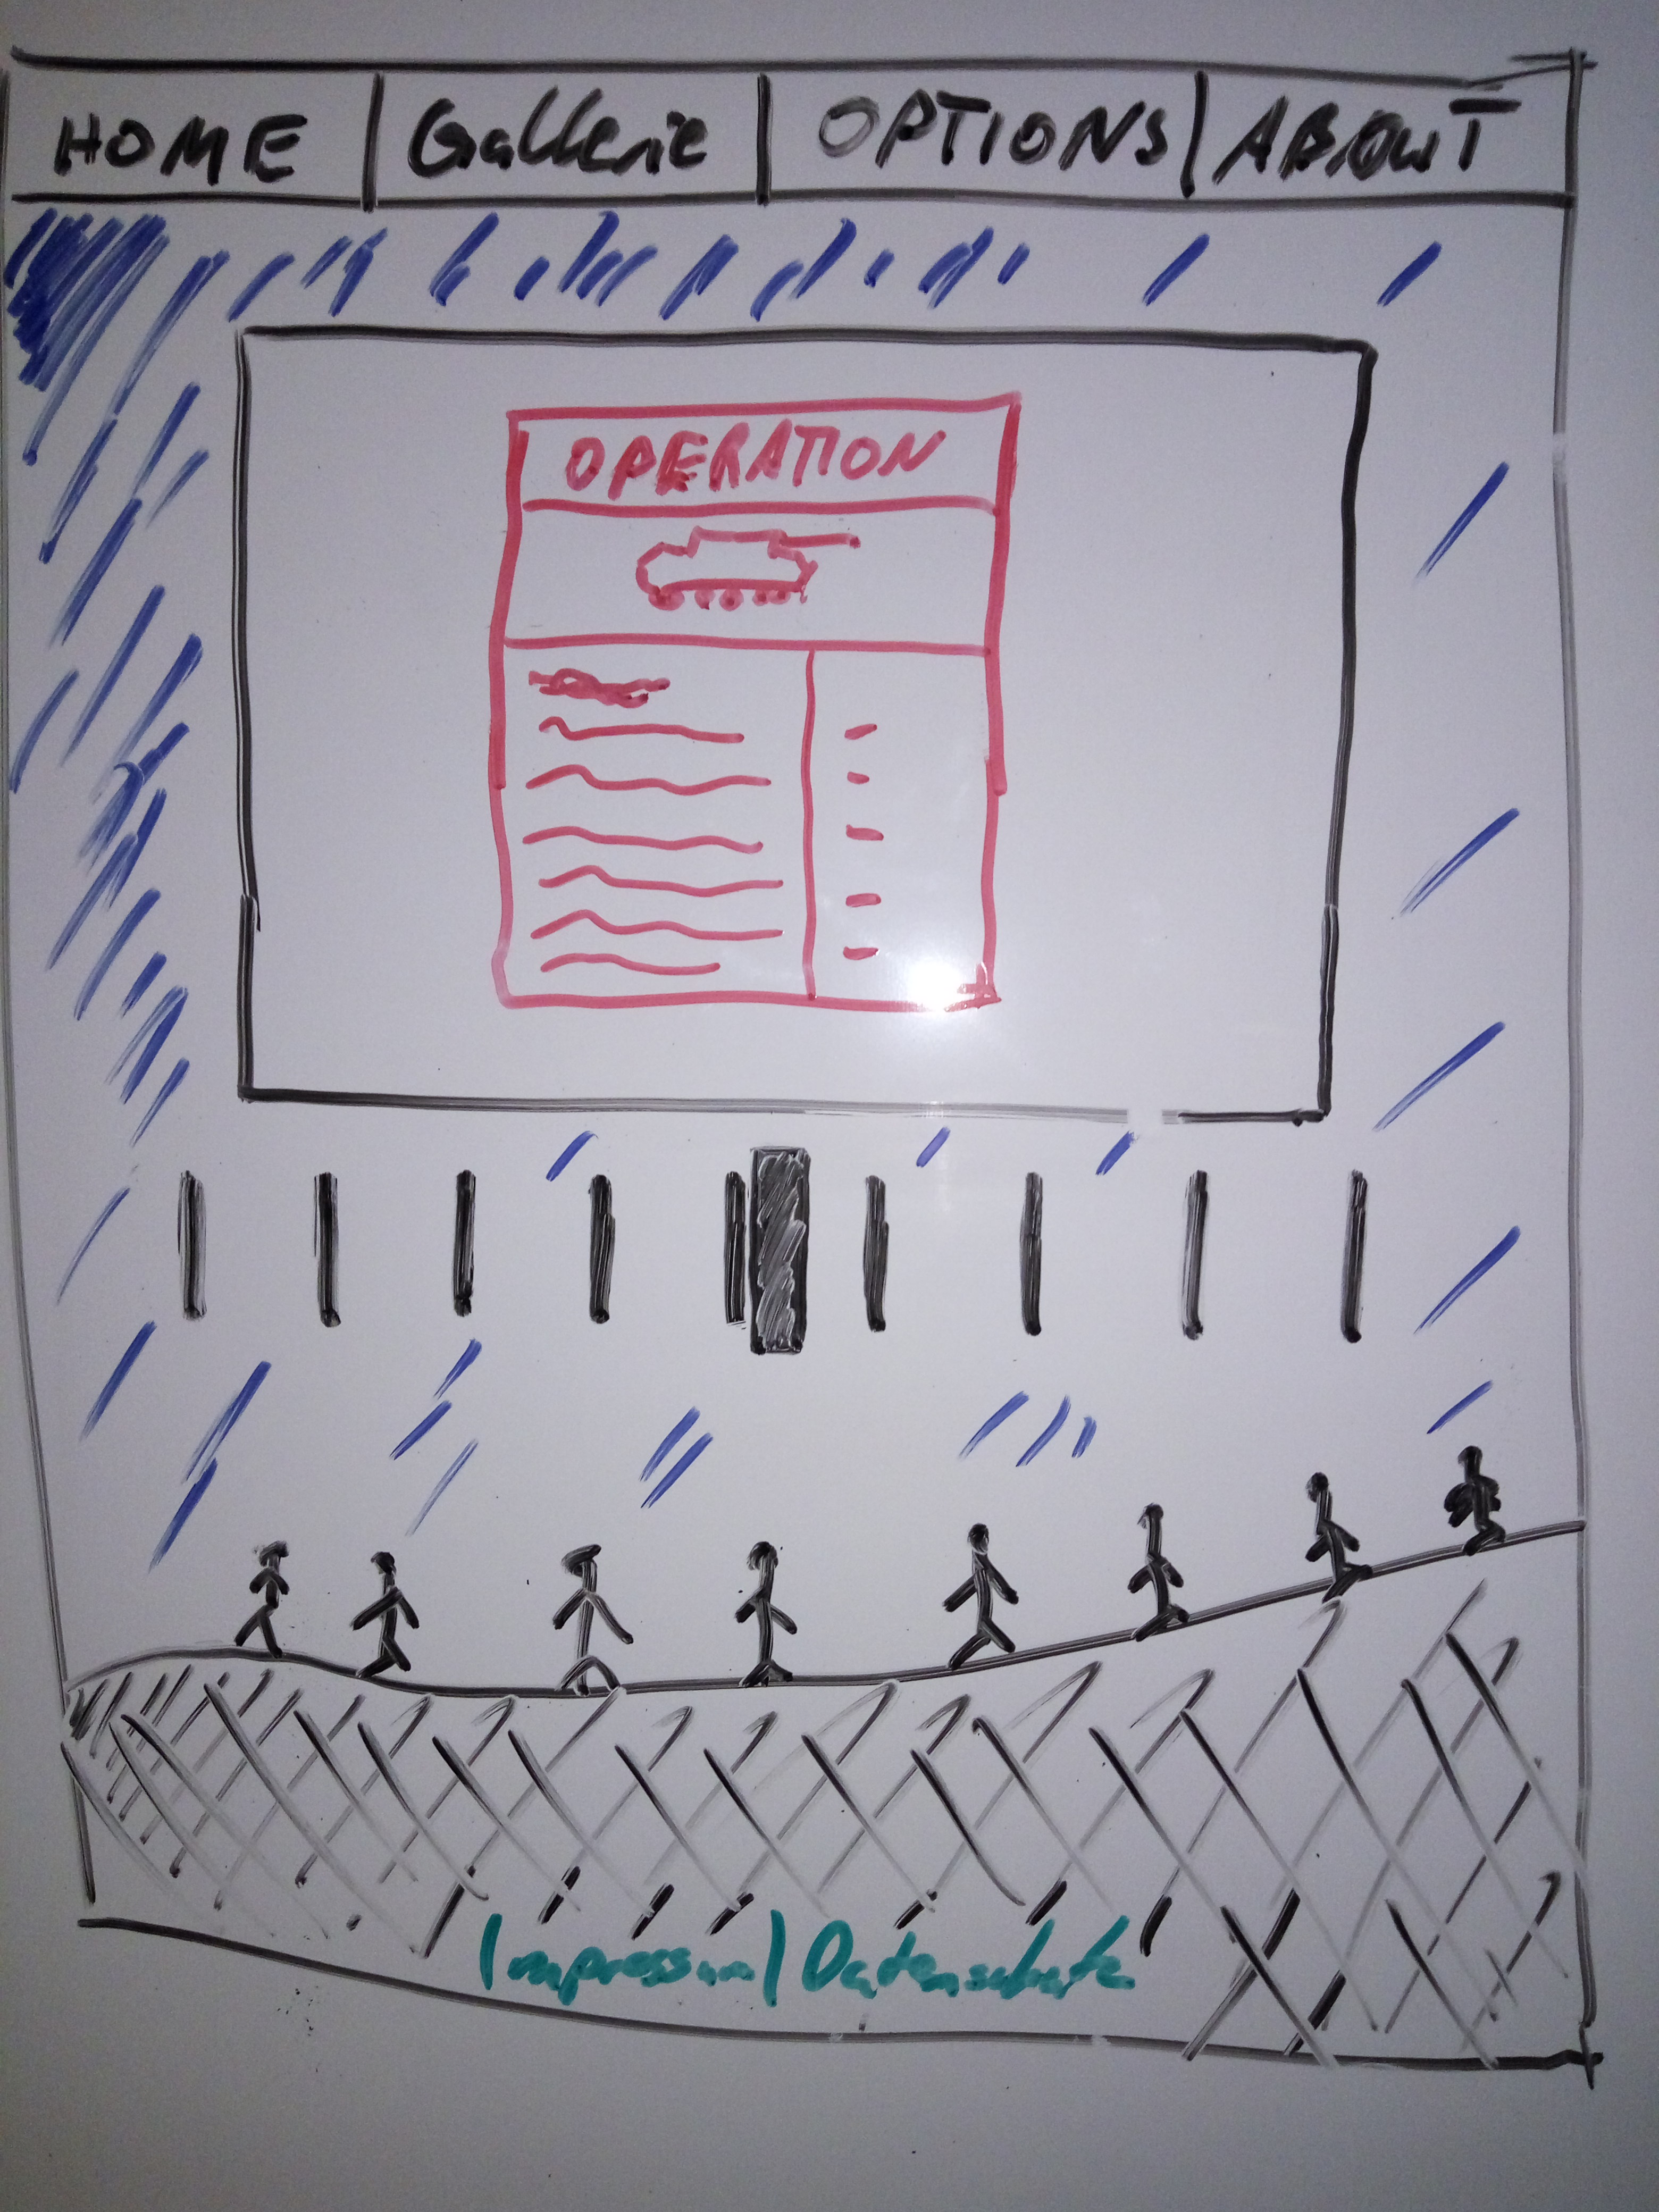 HOME | Gallerie | OPTIONS | ABOUT
OPERATION
Impressum | Datenschutz